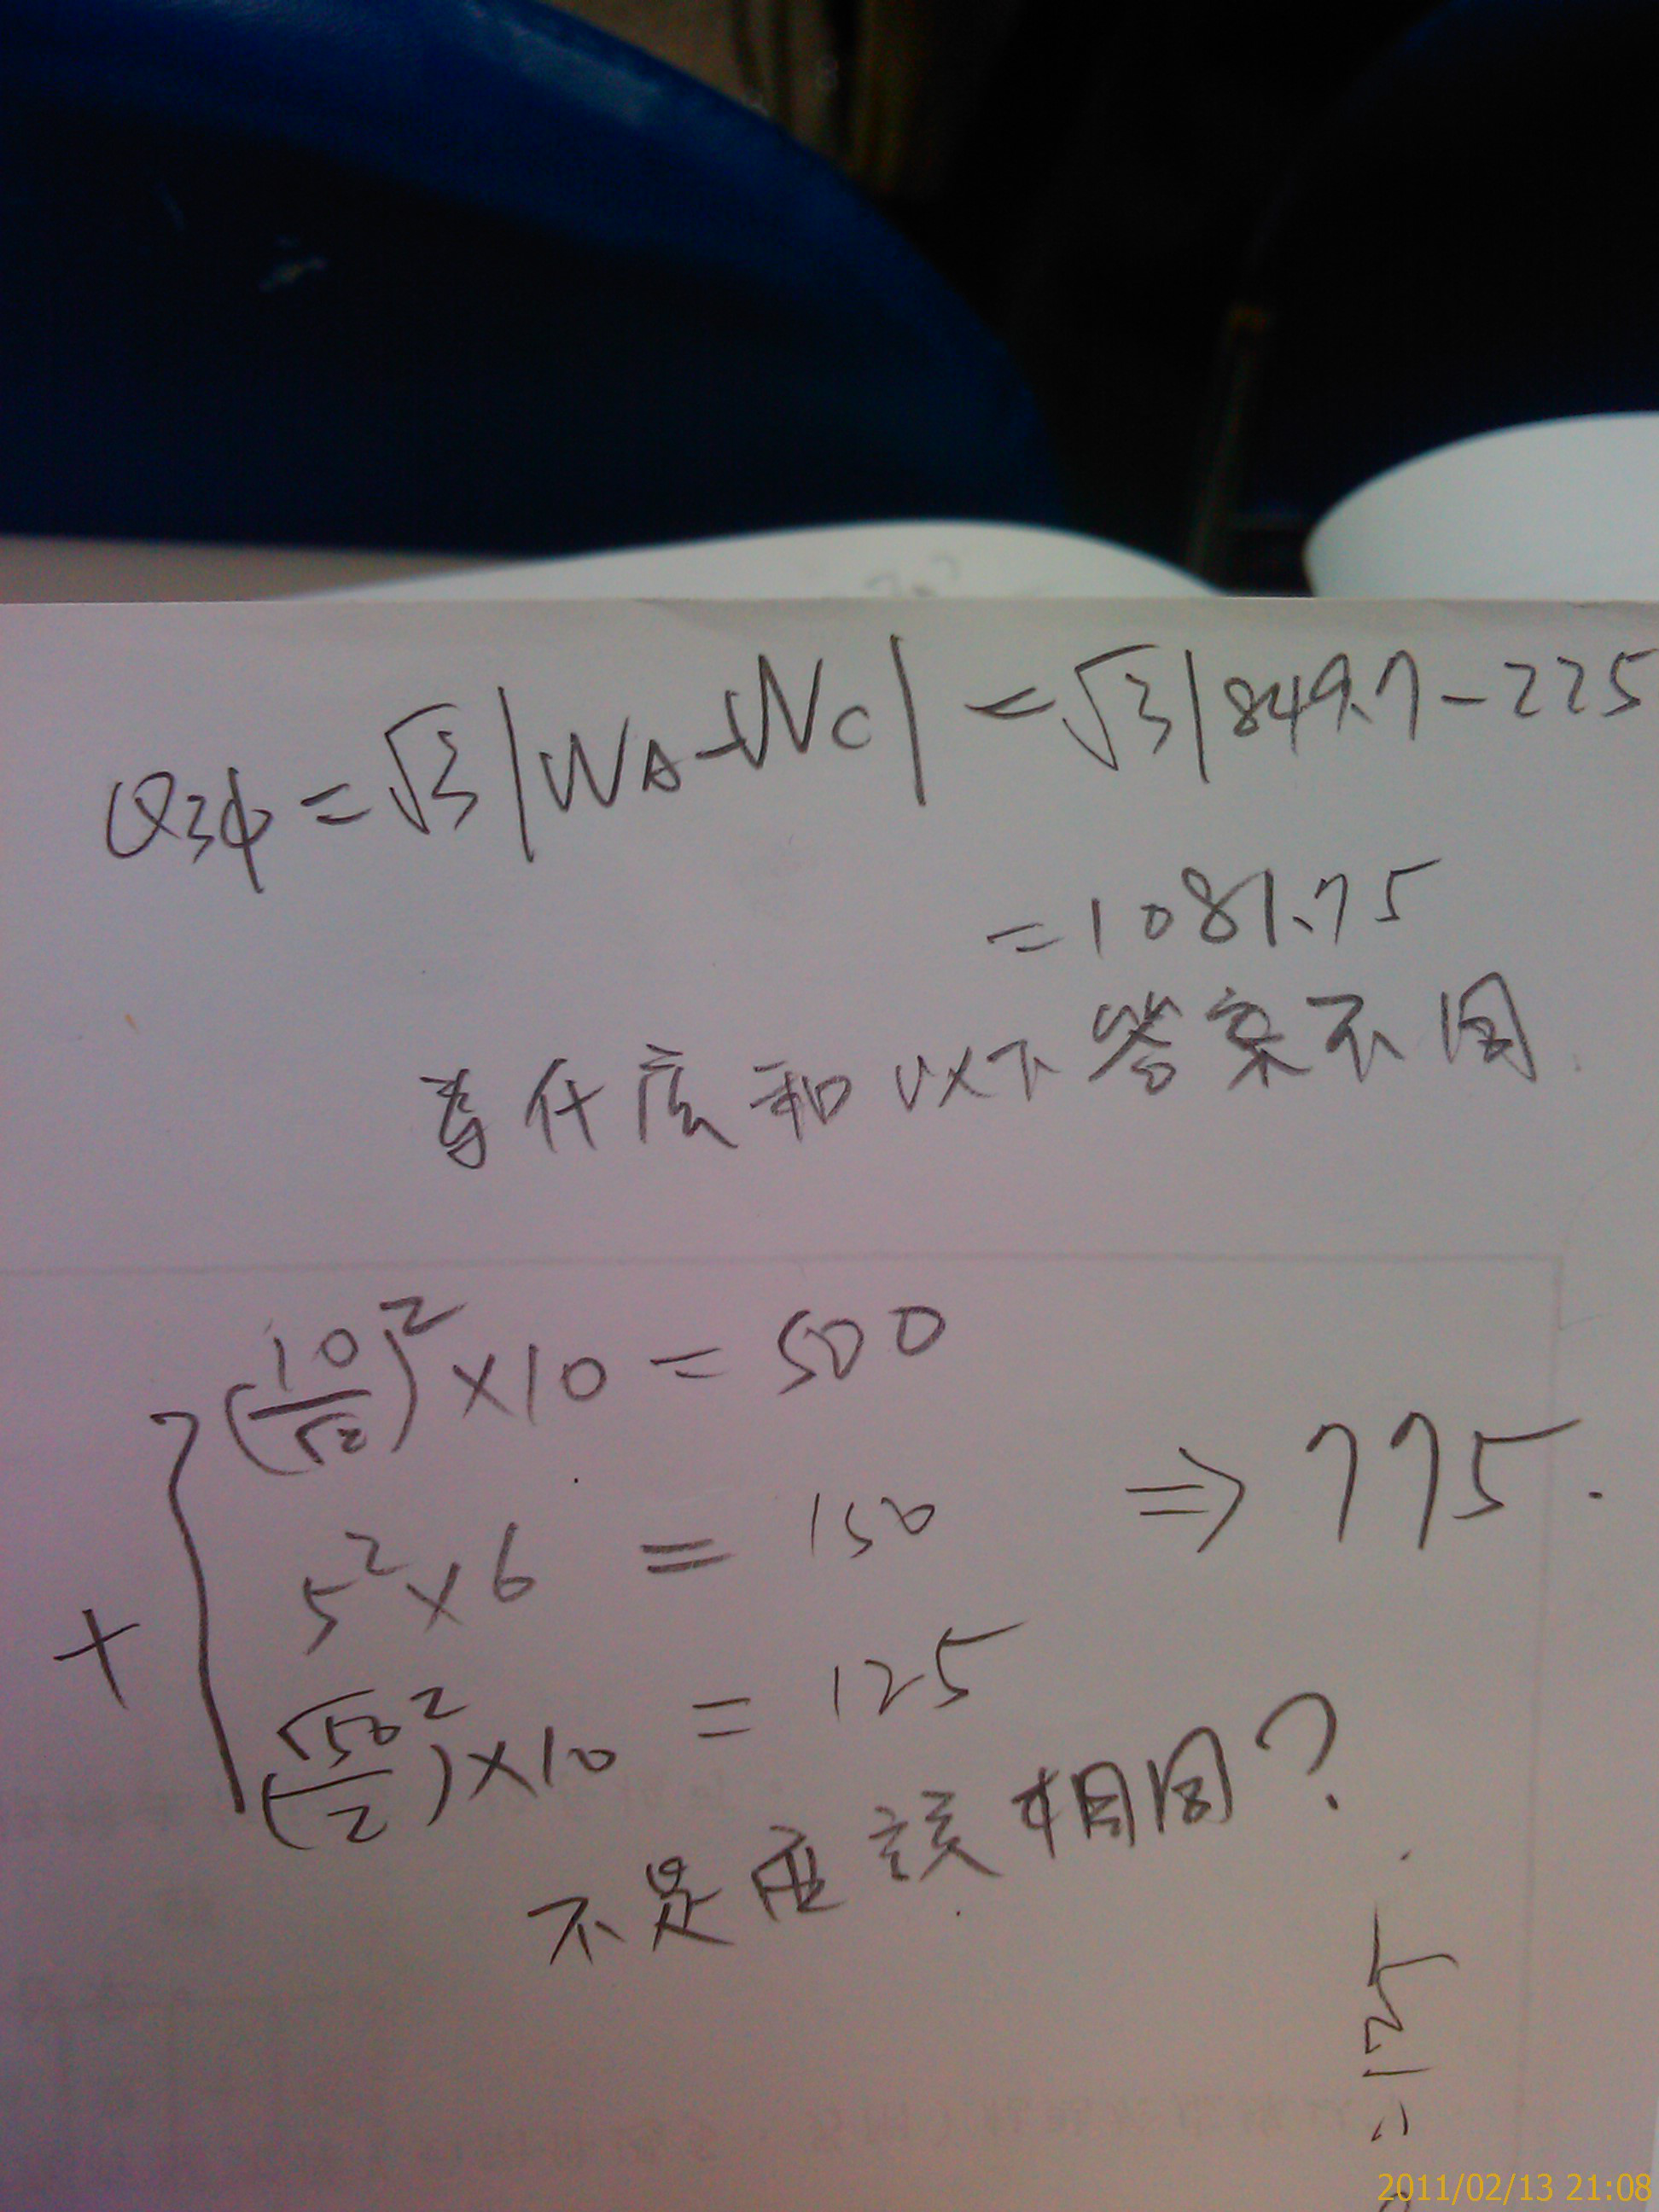 Q3φ = √3|WA-WC| = √3|849.7-225
= 1081.75
為什麼和以下答案不同
(10/√2)² × 10 = 500
5² × 6 = 150 ⇒ 775.
+
(√50/2)² × 10 = 125
不是应該相同?
= 125
2011/02/13 21:08